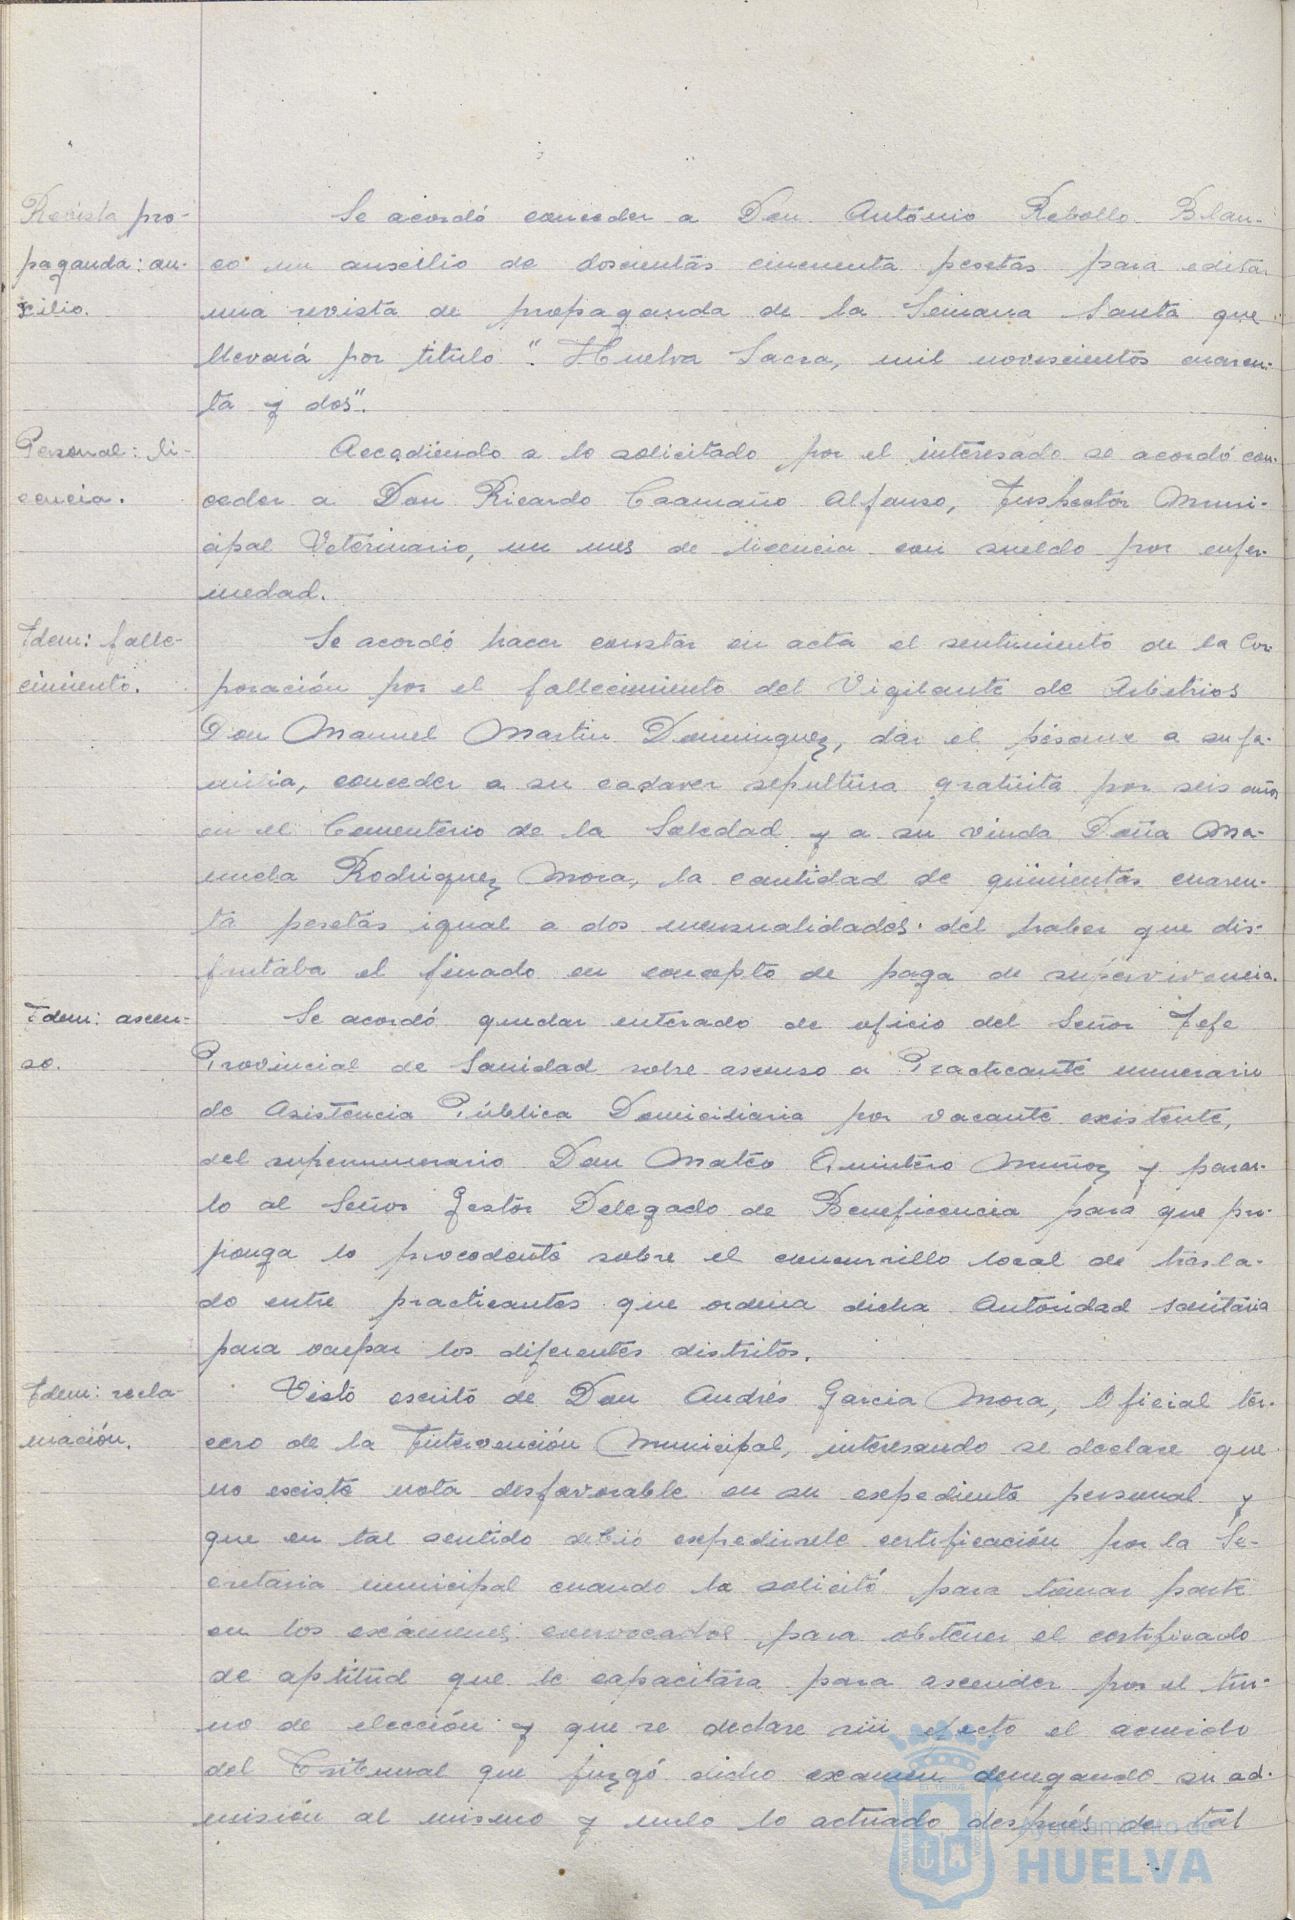 Revista pro-
paganda: au-
xilio.
Se acordó conceder a Don Antonio Rebollo Blan-
co un auscilio de doscientas cincuenta pesetas para editar
una revista de propaganda de la Semana Santa que
llevará por titulo "Huelva Sacra, mil novescientos cuaren-
ta y dos".
Personal: li-
cencia.
Accediendo a lo solicitado por el interesado se acordó con-
ceder a Don Ricardo Caamaño Alfonso, Inspector Muni-
cipal Veterinario, un mes de licencia con sueldo por enfer-
medad.
Idem: falle-
cimiento.
Se acordó hacer constar en acta el sentimiento de la Cor-
poración por el fallecimiento del Vigilante de Arbitrios
Don Manuel Martin Dominguez, dar el pésame a su fa-
milia, conceder a su cadaver sepultura gratuita por seis años
en el Cementerio de la Soledad y a su viuda Doña Ma-
nuela Rodriguez Mora, la cantidad de quinientas cuaren-
ta pesetas igual a dos mensualidades del haber que dis-
frutaba el finado en concepto de paga de supervivencia.
Idem: ascen-
so.
Se acordó quedar enterado de oficio del Señor Jefe
Provincial de Sanidad sobre ascenso a Practicante numerario
de Asistencia Pública Domicidiaria por vacante existente,
del supernumerario Don Mateo Quintero Muñoz y pasar-
lo al Señor Gestor Delegado de Beneficencia para que pro-
ponga lo procedente sobre el concursillo local de trasla-
do entre practicantes que ordena dicha Autoridad sanitaria
para ocupar los diferentes distritos.
Idem: recla-
mación.
Visto escrito de Don Andrés Garcia Mora, Oficial ter-
cero de la Intervención Municipal, interesando se declare que
no esciste nota desfavorable en su expediente personal y
que en tal sentido debió expedirsele certificación por la Se-
cretaria municipal cuando la solicitó para tomar parte
en los exámenes convocados para obtener el certificado
de aptitud que le capacitara para ascender por el tur-
no de elección y que se declare sin efecto el acuerdo
del Tribunal que juzgó dicho examen denegando su ad-
misión al mismo y nulo lo actuado después de tal
Ayuntamiento de
HUELVA